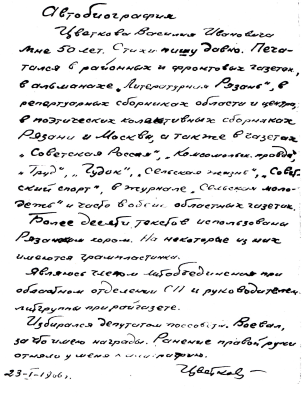 Автобиография
Цветкова Василия Ивановича
Мне 50 лет. Стихи пишу давно. Печа-
тался в районных и фронтовых газетах,
в альманахе „Литературная Рязань", в
репертуарных сборниках области и центра,
в поэтических коллективных сборниках
Рязани и Москвы, а также в газетах
„Советская Россия", „Комсомольск. правда",
„Труд", „Гудок", „Сельская жизнь", „Совет-
ский спорт", в журнале „Сельская моло-
дежь" и часто в област. областных газетах.
Более десяти текстов использованы
Рязанским хором. На некоторые из них
имеются грампластинки.
Являюсь членом литобъединения при
областном отделении СП и руководителем
литгруппы при райгазете.
Избирался депутатом поссовета. Воевал,
за что имею награды. Ранение правой руки
отняло у меня
Цветков